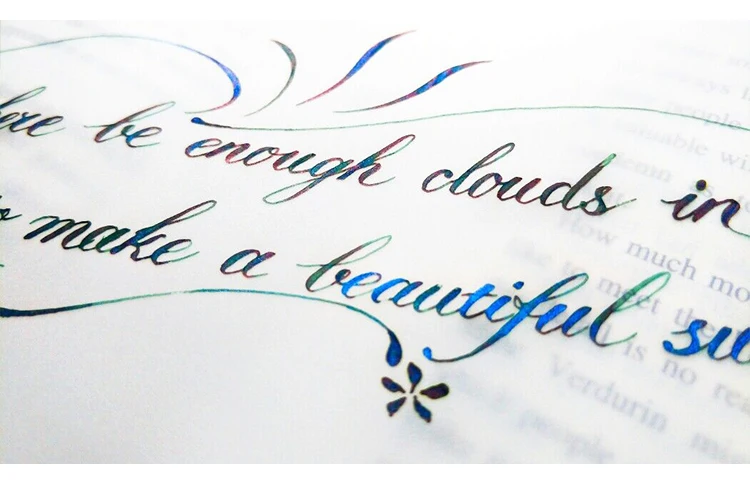 here be enough clouds in
make a beautiful su
people
valuable wi
How much mo
to meet the
is no rea
Verdurin ma
people